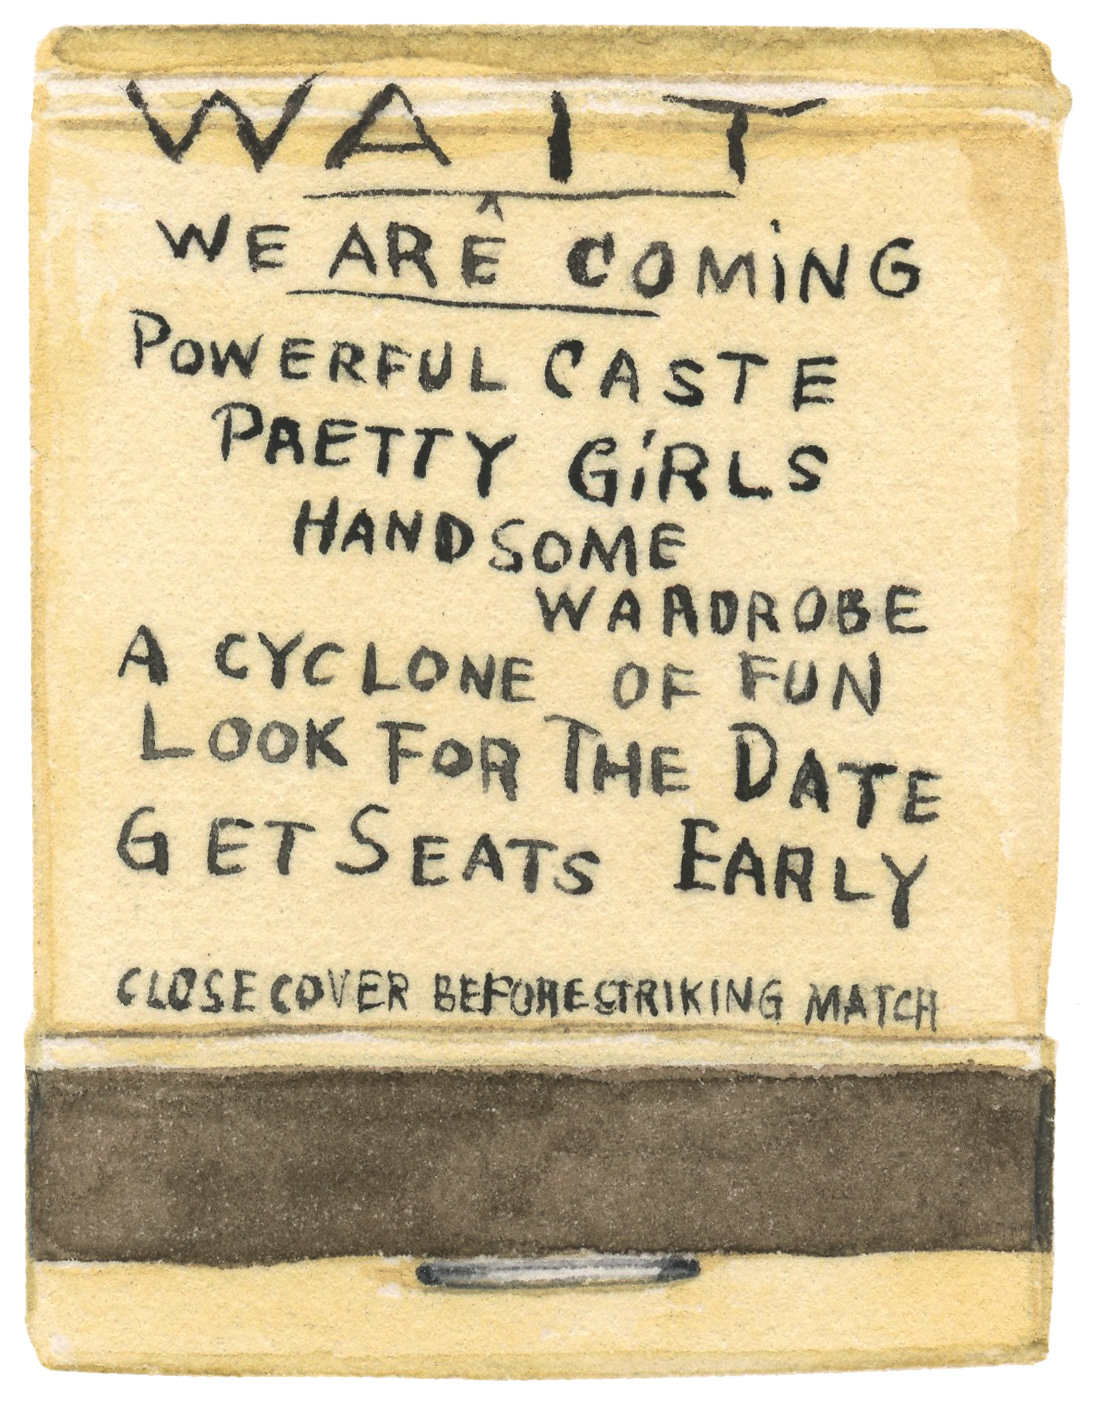 WAIT
WE ARÊ COMING
POWERFUL CASTE
PRETTY GIRLS
HANDSOME
WARDROBE
A CYCLONE OF FUN
LOOK FOR THE DATE
GET SEATS EARLY
CLOSE COVER BEFORE STRIKING MATCH